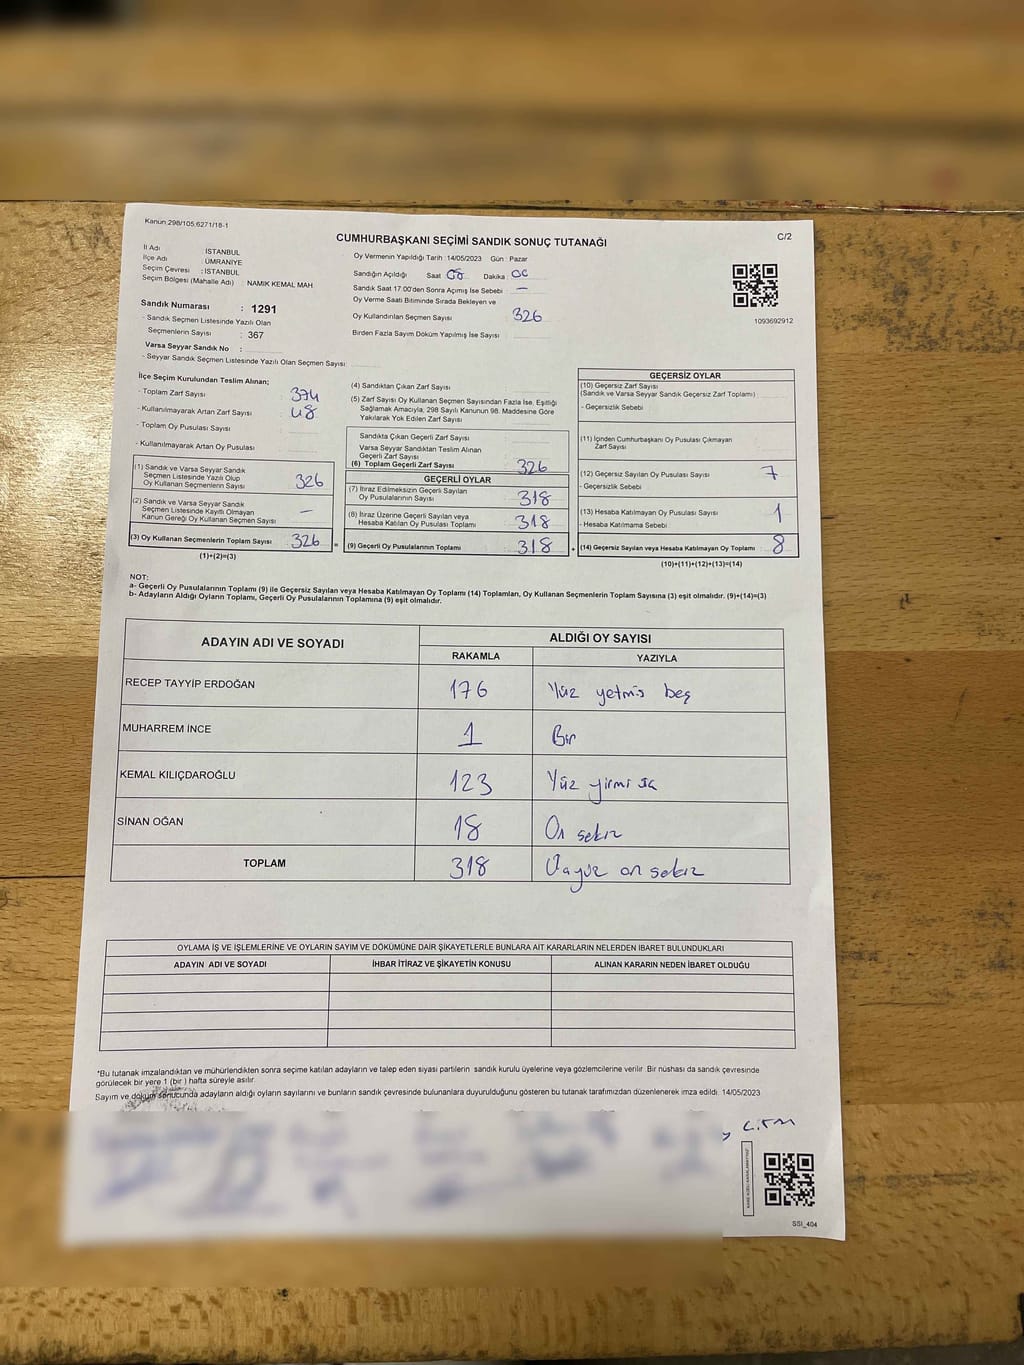 Kanun:298/105,6271/18-1
C/2
CUMHURBAŞKANI SEÇİMİ SANDIK SONUÇ TUTANAĞI
İl Adı : İSTANBUL
İlçe Adı : ÜMRANİYE
Seçim Çevresi : İSTANBUL
Seçim Bölgesi (Mahalle Adı) : NAMIK KEMAL MAH
Sandık Numarası : 1291
- Sandık Seçmen Listesinde Yazılı Olan
Seçmenlerin Sayısı : 367
Varsa Seyyar Sandık No :
- Seyyar Sandık Seçmen Listesinde Yazılı Olan Seçmen Sayısı:
Oy Vermenin Yapıldığı Tarih : 14/05/2023 Gün : Pazar
Sandığın Açıldığı Saat 08 Dakika 00
Sandık Saat 17.00'den Sonra Açımış İse Sebebi —
Oy Verme Saati Bitiminde Sırada Bekleyen ve
Oy Kullandırılan Seçmen Sayısı 326
Birden Fazla Sayım Döküm Yapılmış İse Sayısı
1093692912
İlçe Seçim Kurulundan Teslim Alınan;
- Toplam Zarf Sayısı 374
- Kullanılmayarak Artan Zarf Sayısı 48
- Toplam Oy Pusulası Sayısı
- Kullanılmayarak Artan Oy Pusulası
(1) Sandık ve Varsa Seyyar Sandık
Seçmen Listesinde Yazılı Olup
Oy Kullanan Seçmenlerin Sayısı 326
(2) Sandık ve Varsa Seyyar Sandık
Seçmen Listesinde Kayıtlı Olmayan
Kanun Gereği Oy Kullanan Seçmen Sayısı —
(3) Oy Kullanan Seçmenlerin Toplam Sayısı 326
(1)+(2)=(3)
(4) Sandıktan Çıkan Zarf Sayısı
(5) Zarf Sayısı Oy Kullanan Seçmen Sayısından Fazla İse, Eşitliği
Sağlamak Amacıyla, 298 Sayılı Kanunun 98. Maddesine Göre
Yakılarak Yok Edilen Zarf Sayısı
Sandıkta Çıkan Geçerli Zarf Sayısı
Varsa Seyyar Sandıktan Teslim Alınan
Geçerli Zarf Sayısı
(6) Toplam Geçerli Zarf Sayısı 326
GEÇERLİ OYLAR
(7) İtiraz Edilmeksizin Geçerli Sayılan
Oy Pusulalarının Sayısı 318
(8) İtiraz Üzerine Geçerli Sayılan veya
Hesaba Katılan Oy Pusulası Toplamı 318
= (9) Geçerli Oy Pusulalarının Toplamı 318
GEÇERSİZ OYLAR
(10) Geçersiz Zarf Sayısı
(Sandık ve Varsa Seyyar Sandık Geçersiz Zarf Toplamı)
- Geçersizlik Sebebi
(11) İçinden Cumhurbaşkanı Oy Pusulası Çıkmayan
Zarf Sayısı
(12) Geçersiz Sayılan Oy Pusulası Sayısı 7
- Geçersizlik Sebebi
(13) Hesaba Katılmayan Oy Pusulası Sayısı 1
- Hesaba Katılmama Sebebi
+ (14) Geçersiz Sayılan veya Hesaba Katılmayan Oy Toplamı 8
(10)+(11)+(12)+(13)=(14)
NOT:
a- Geçerli Oy Pusulalarının Toplamı (9) ile Geçersiz Sayılan veya Hesaba Katılmayan Oy Toplamı (14) Toplamları, Oy Kullanan Seçmenlerin Toplam Sayısına (3) eşit olmalıdır. (9)+(14)=(3)
b- Adayların Aldığı Oyların Toplamı, Geçerli Oy Pusulalarının Toplamına (9) eşit olmalıdır.
ADAYIN ADI VE SOYADI
ALDIĞI OY SAYISI
RAKAMLA YAZIYLA
RECEP TAYYİP ERDOĞAN 176 Yüz yetmis beş
MUHARREM İNCE 1 Bir
KEMAL KILIÇDAROĞLU 123 Yüz yirmi
SİNAN OĞAN 18 On sekiz
TOPLAM 318 Üçyüz on sekiz
OYLAMA İŞ VE İŞLEMLERİNE VE OYLARIN SAYIM VE DÖKÜMÜNE DAİR ŞİKAYETLERLE BUNLARA AİT KARARLARIN NELERDEN İBARET BULUNDUKLARI
ADAYIN ADI VE SOYADI İHBAR İTİRAZ VE ŞİKAYETİN KONUSU ALINAN KARARIN NEDEN İBARET OLDUĞU
*Bu tutanak imzalandıktan ve mühürlendikten sonra seçime katılan adayların ve talep eden siyasi partilerin sandık kurulu üyelerine veya gözlemcilerine verilir. Bir nüshası da sandık çevresinde
görülecek bir yere 1 (bir) hafta süreyle asılır.
Sayım ve döküm sonucunda adayların aldığı oyların sayılarını ve bunların sandık çevresinde bulunanlara duyurulduğunu gösteren bu tutanak tarafımızdan düzenlenerek imza edildi. 14/05/2023
SSI_404